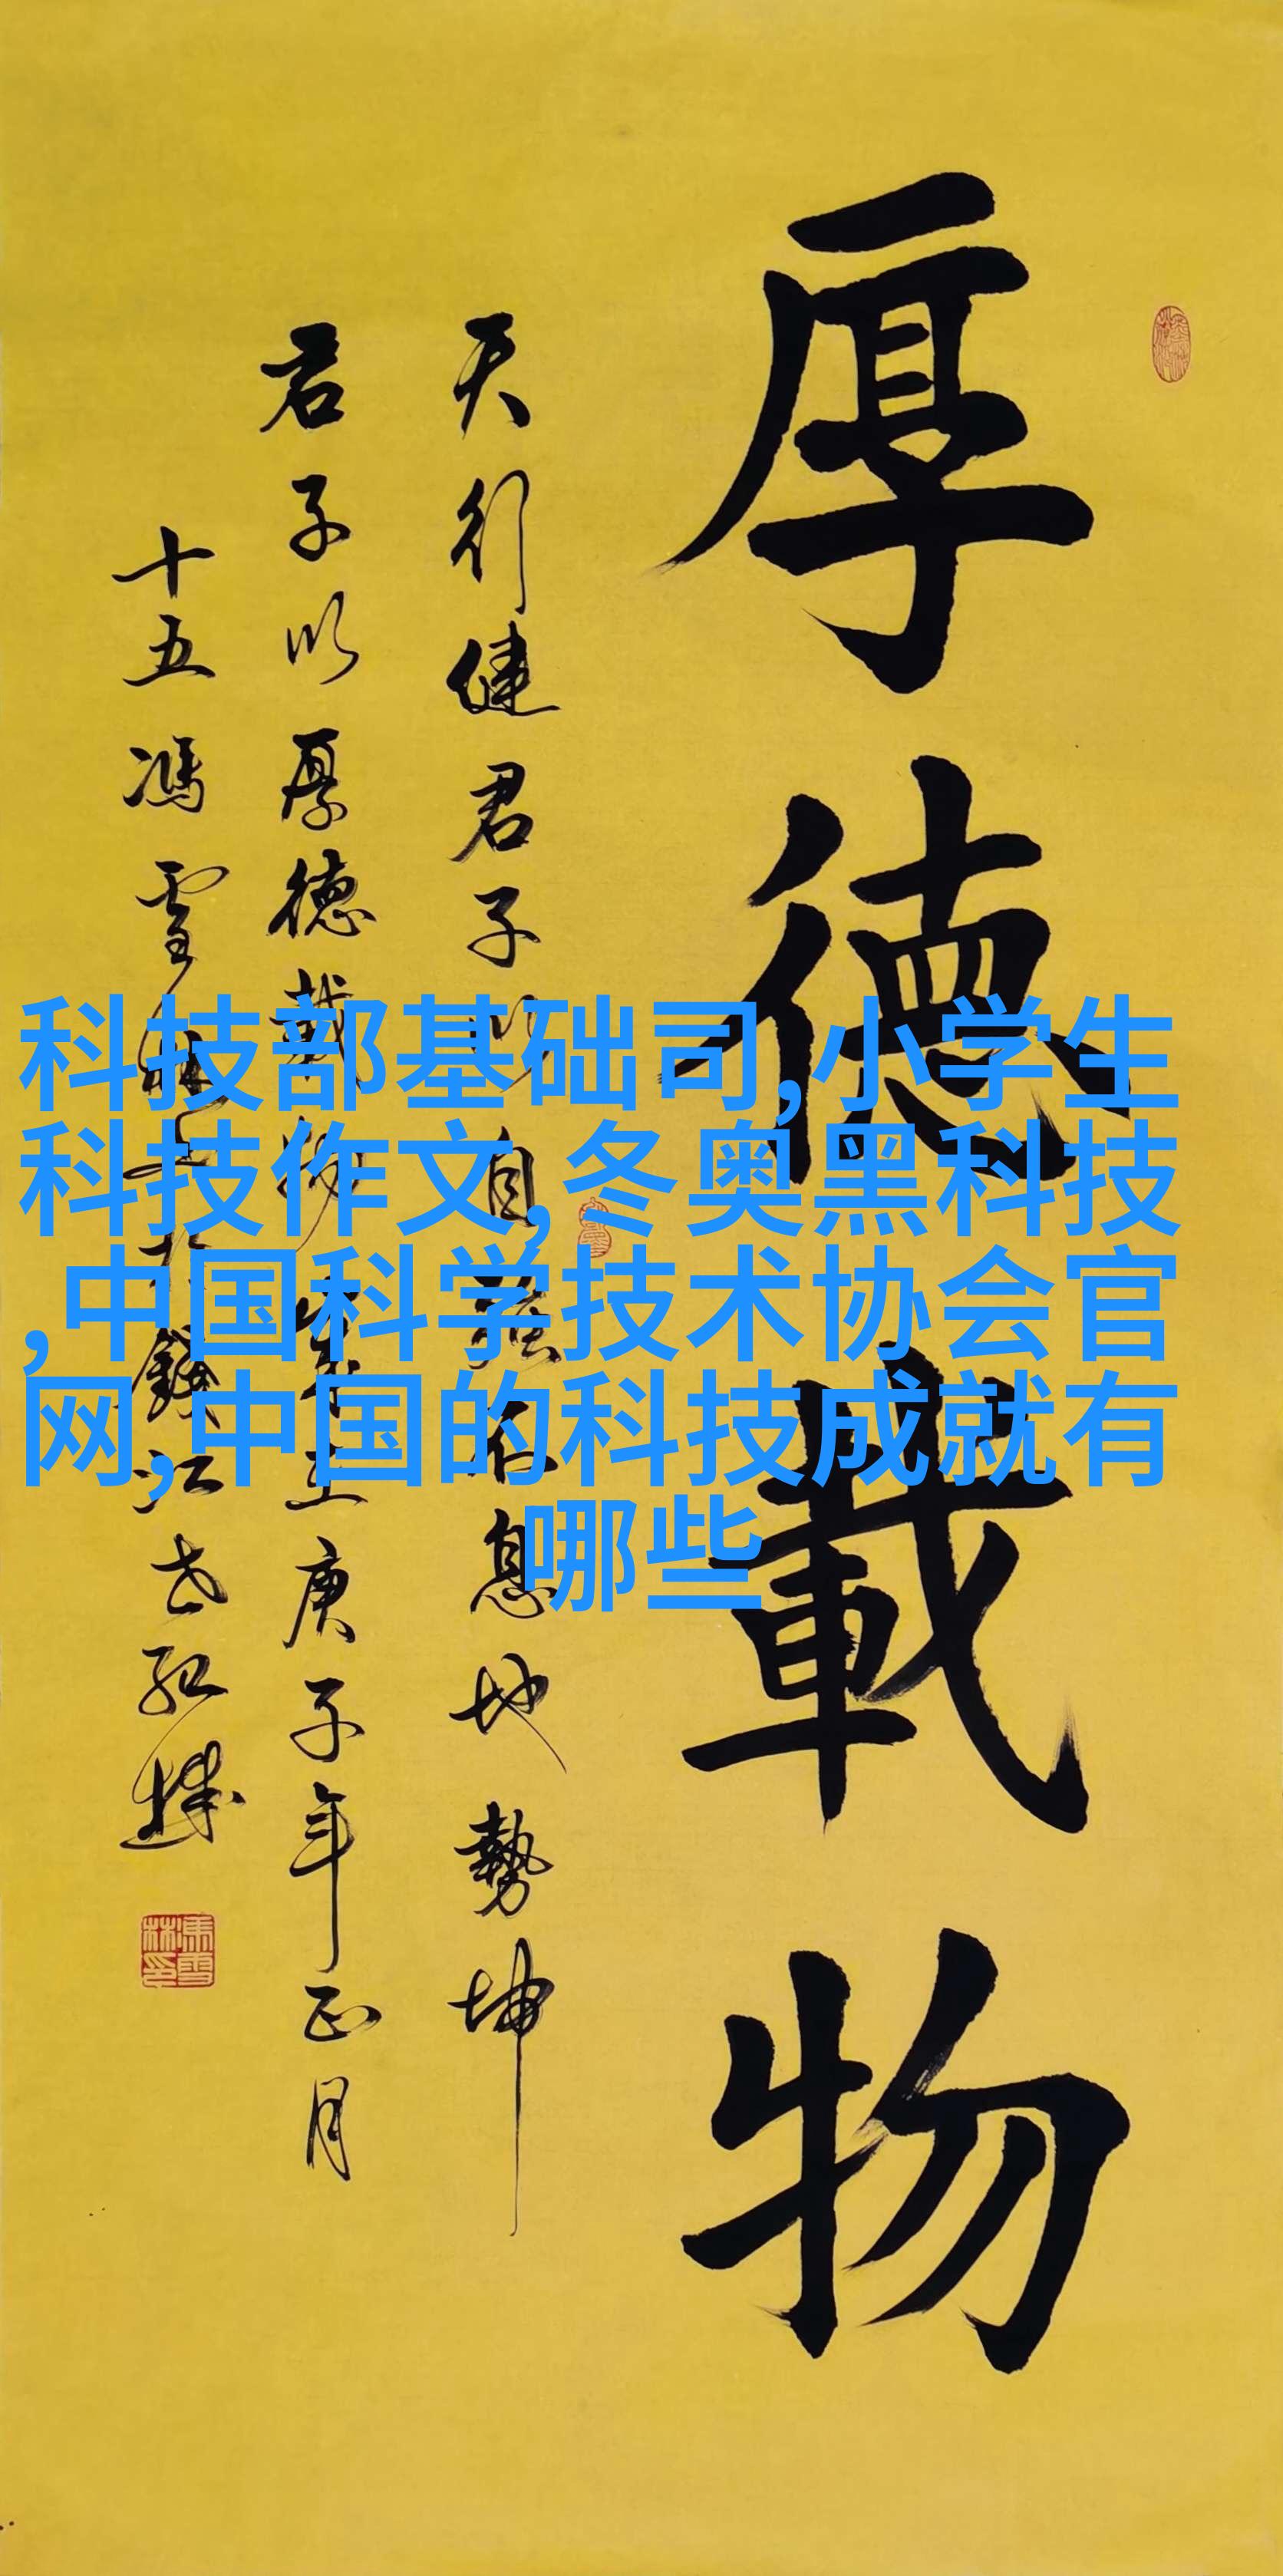 厚德載物
天行健君子以自強不息地勢坤
君子以厚德載物 歲在庚子年正月
十五馮雪林 錢江
科技部基础司,小学生
科技作文,冬奥黑科技
,中国科学技术协会官
网,中国的科技成就有
哪些
馮雪林印